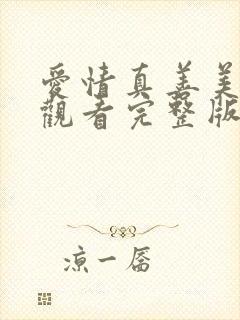 愛情真善美
觀看完整版
涼一屬